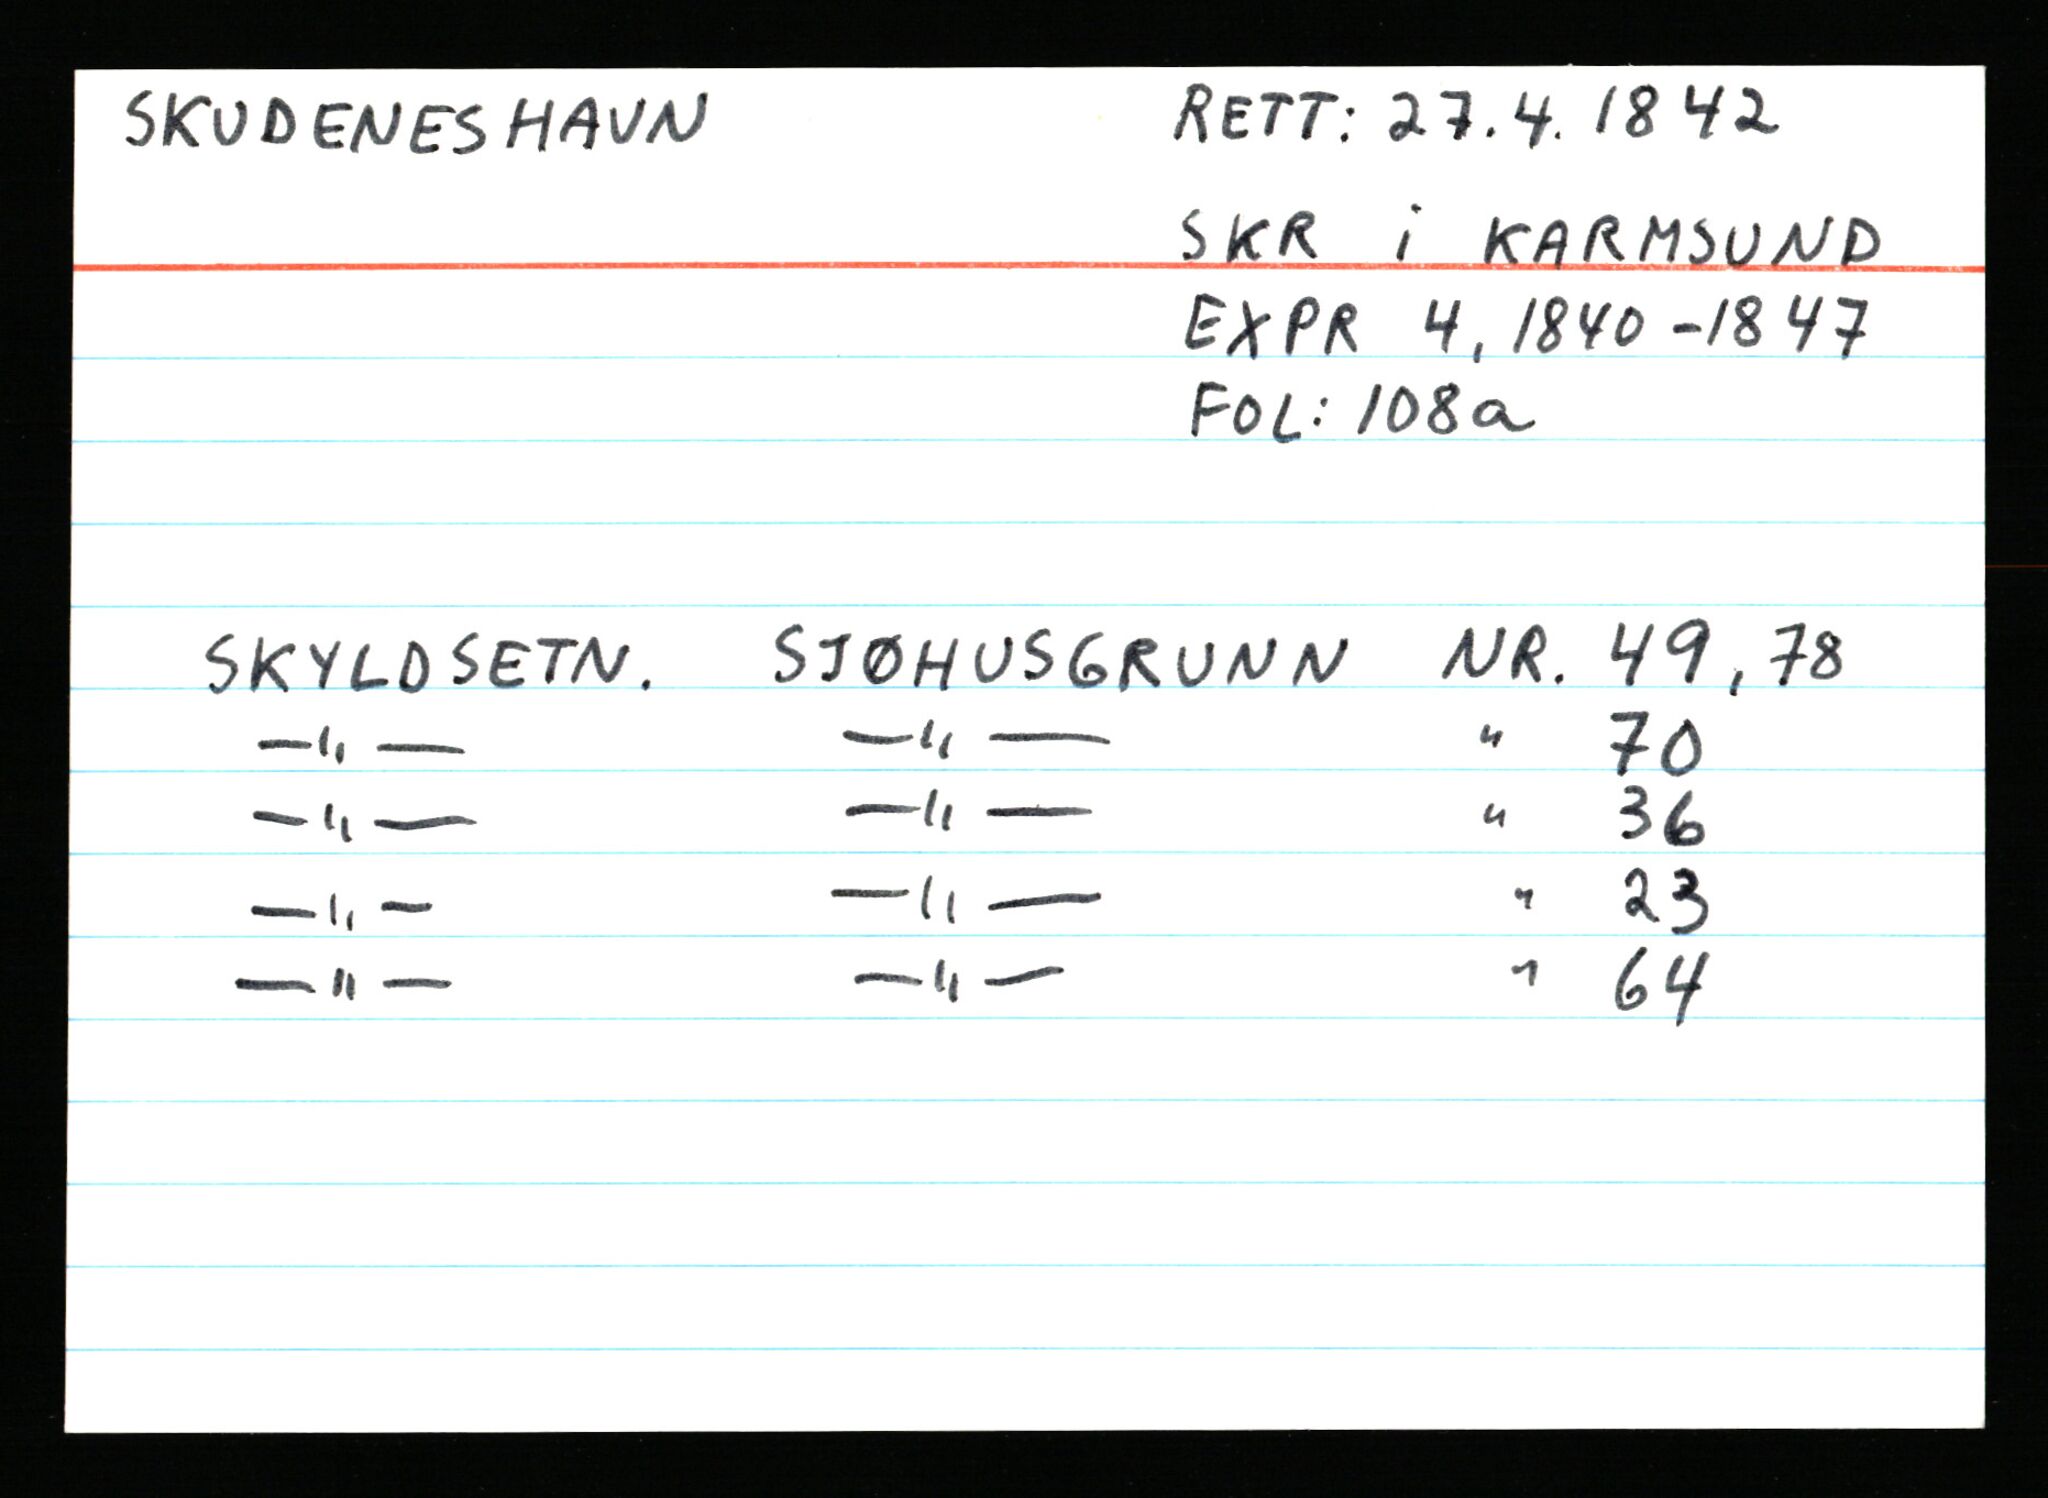 SKUDENESHAVN RETT: 27.4.1842
SKR i KARMSUND
EXPR 4, 1840-1847
FOL: 108a
SKYLDSETN. SJØHUSGRUNN NR. 49, 78
—"— —"— " 70
—"— —"— " 36
—"— —"— " 23
—"— —"— " 64